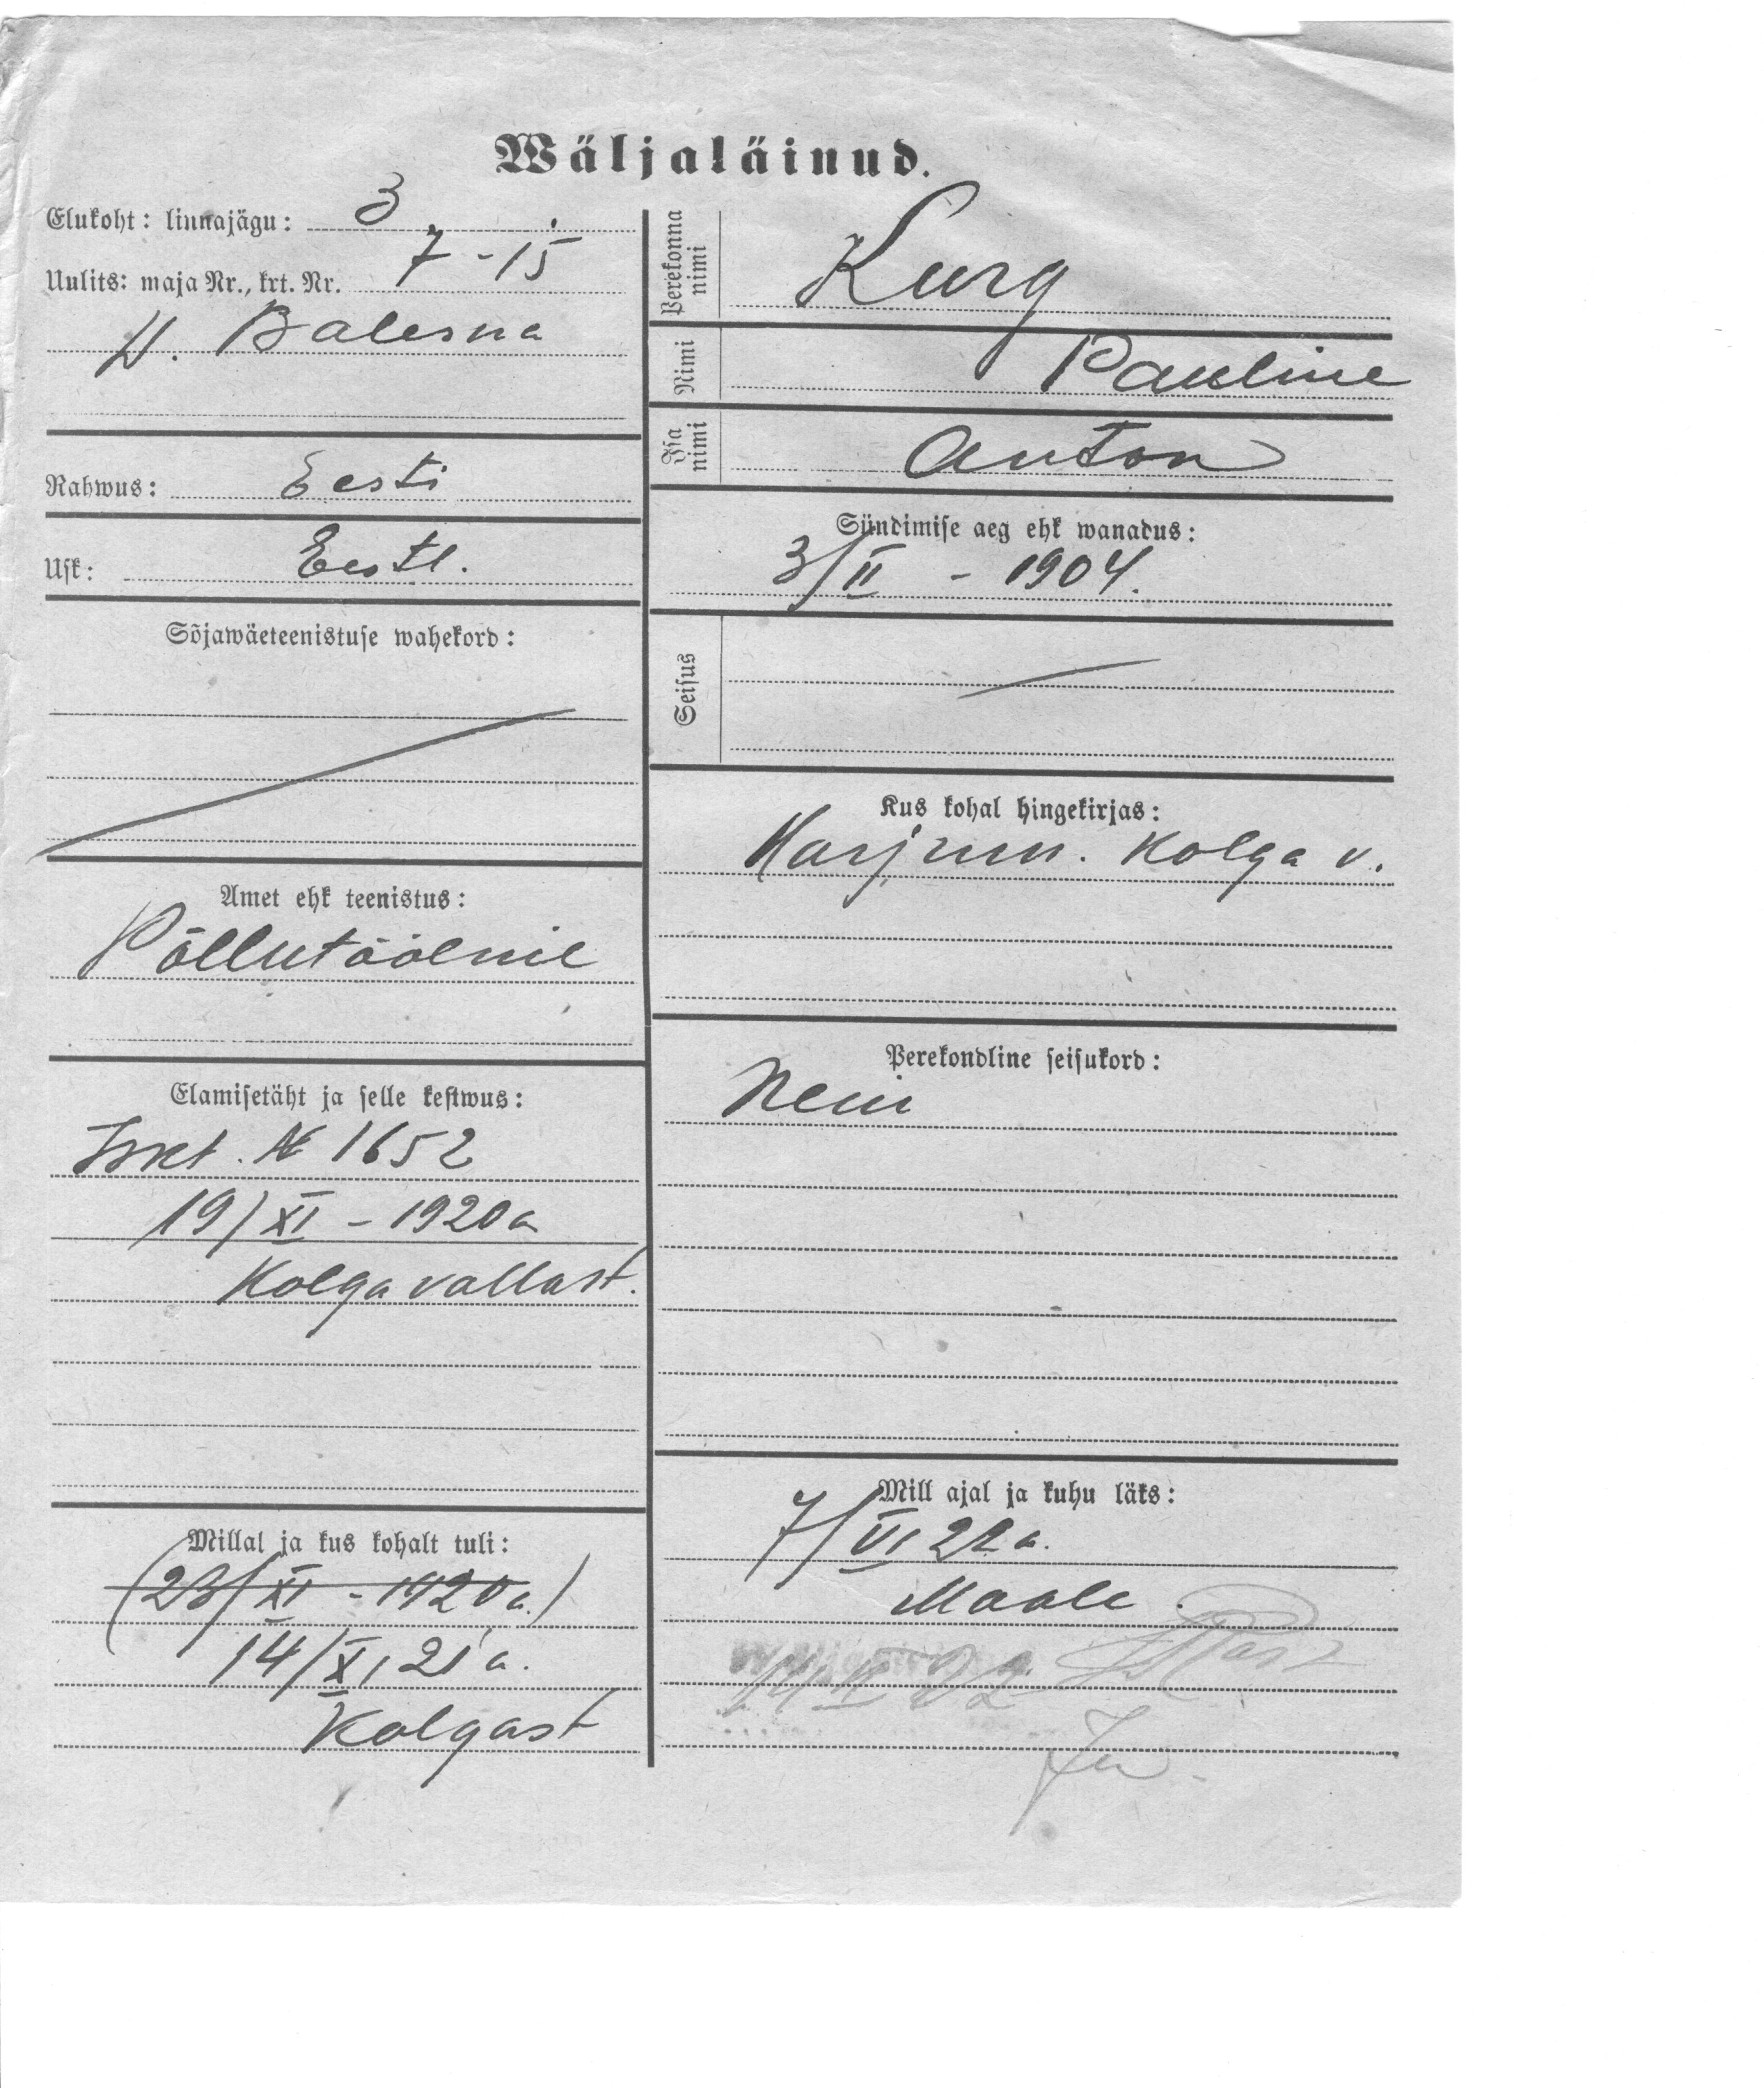 Wäljaläinud.
Elukoht: linnajägu: 3
Uulits: maja Nr., krt. Nr. 7-15
Balesna
Rahwus: Eesti
Usk:
Sõjawäeteenistuse wahekord:
Amet ehk teenistus:
Põllutööline
Elamisetäht ja selle kestwus:
№ 1652
19/XI - 1920a
Kolga vallast.
Millal ja kus kohalt tuli:
(23/XI - 1920a.)
14/XI 21 a.
Kolgast
Perekonna nimi
Kurg
Nimi
Pauline
Isa nimi
Anton
Sündimise aeg ehk wanadus:
3/II - 1904.
Seisus
Kus kohal hingekirjas:
Harjum. Kolga v.
Perekondline seisukord:
Neiu
Mill ajal ja kuhu läks:
7/VI 22 a.
Maale.